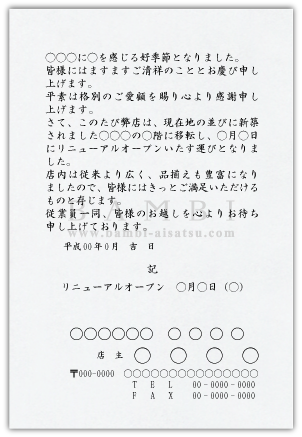 ○○○に○を感じる好季節となりました。
皆様にはますますご清祥のこととお慶び申し
上げます。
平素は格別のご愛顧を賜り心より感謝申し
上げます。
さて、このたび弊店は、現在地の並びに新築
されました○○○の○階に移転し、○月○日
にリニューアルオープンいたす運びとなりま
した。
店内は従来より広く、品揃えも豊富になり
ましたので、皆様にはきっとご満足いただける
ものと存じます。
従業員一同、皆様のお越しを心よりお待ち
申し上げております。
BAMBI
www.bambi-aisatsu.com
平成00年0月 吉 日
記
リニューアルオープン ○月○日(○)
○○○○○○ ○ ○ ○ ○
店 主 ○ ○ ○ ○
〒000-0000 ○○○○○○○○○○○○○○
TEL 00-0000-0000
FAX 00-0000-0000